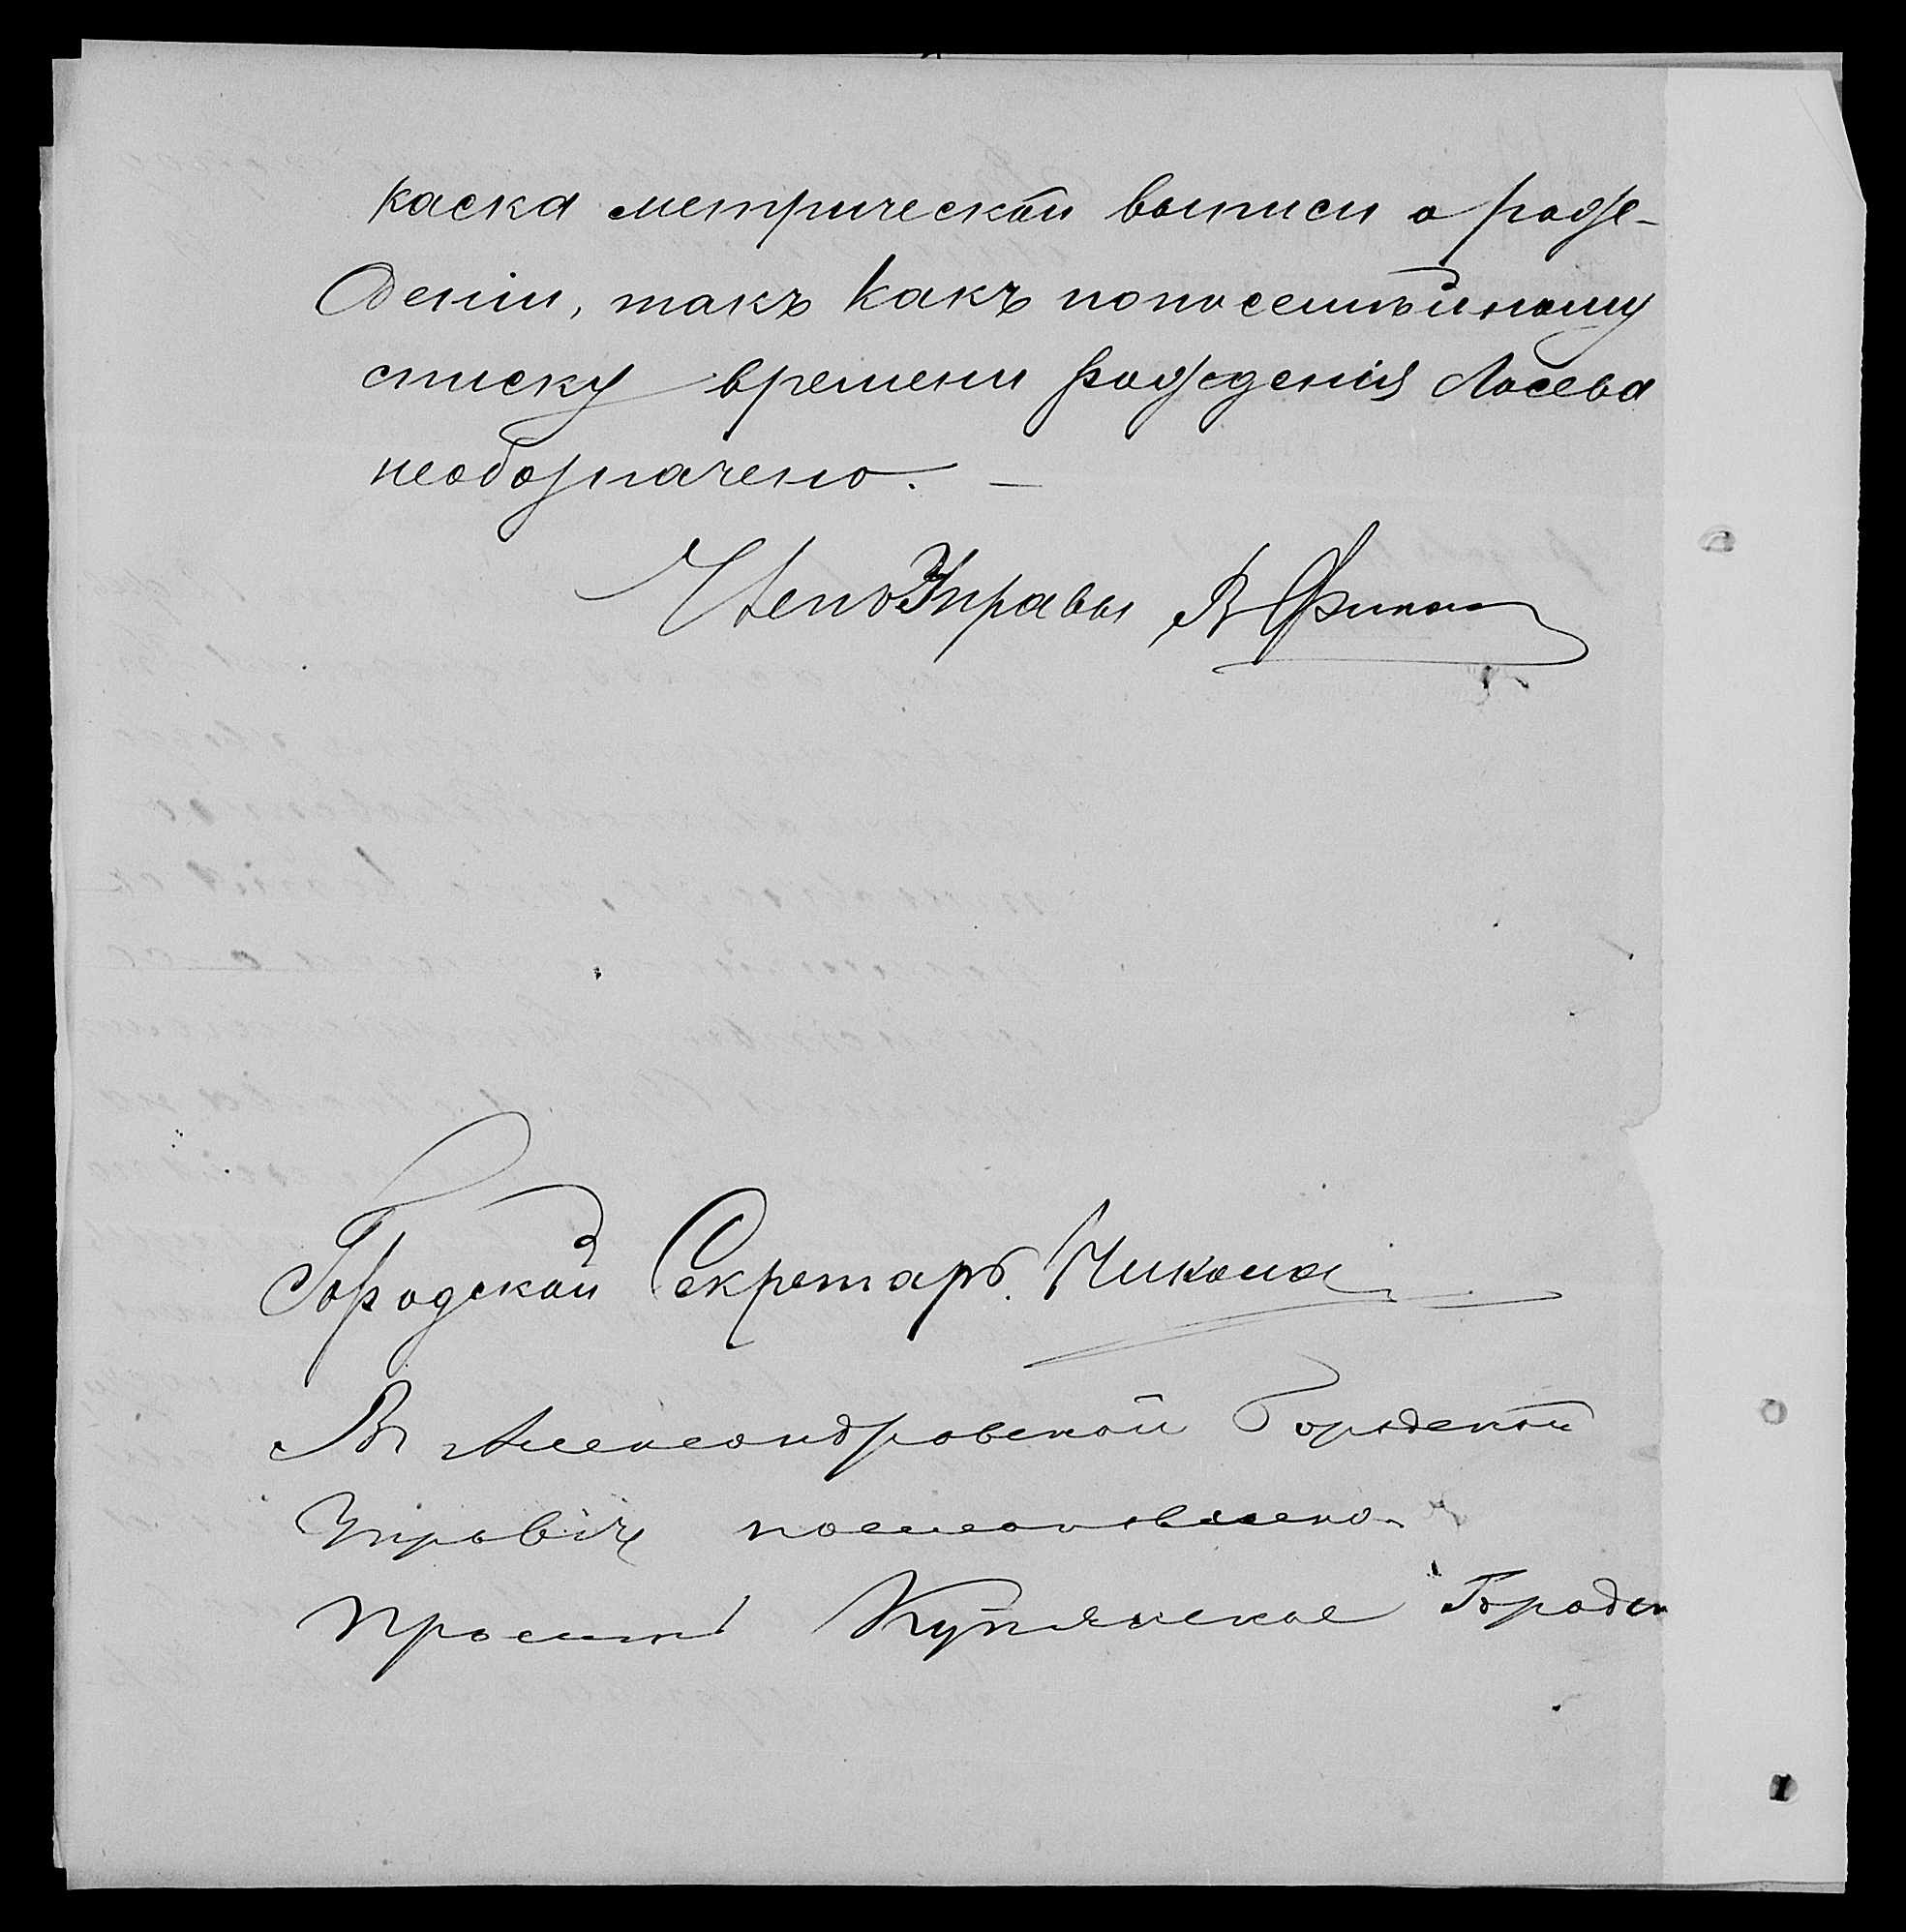 каска метрической выписи о рож-
деніи, такъ какъ попосемейному
списку времени рожденія Лосева
необозначено. —
Членъ Управы В
Городской Секретарь
Въ Александровской Городской
Управѣ постановлено
просить Купянское Городск